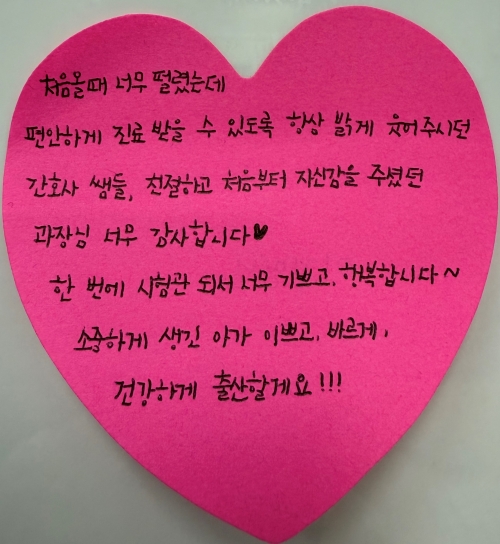 처음올때 너무 떨렸는데
편안하게 진료 받을 수 있도록 항상 밝게 웃어주시던
간호사 쌤들, 친절하고 처음부터 자신감을 주셨던
과장님 너무 감사합니다♥
한 번에 시험관 되서 너무 기쁘고, 행복합니다~
소중하게 생긴 아가 이쁘고, 바르게,
건강하게 출산할게요!!!